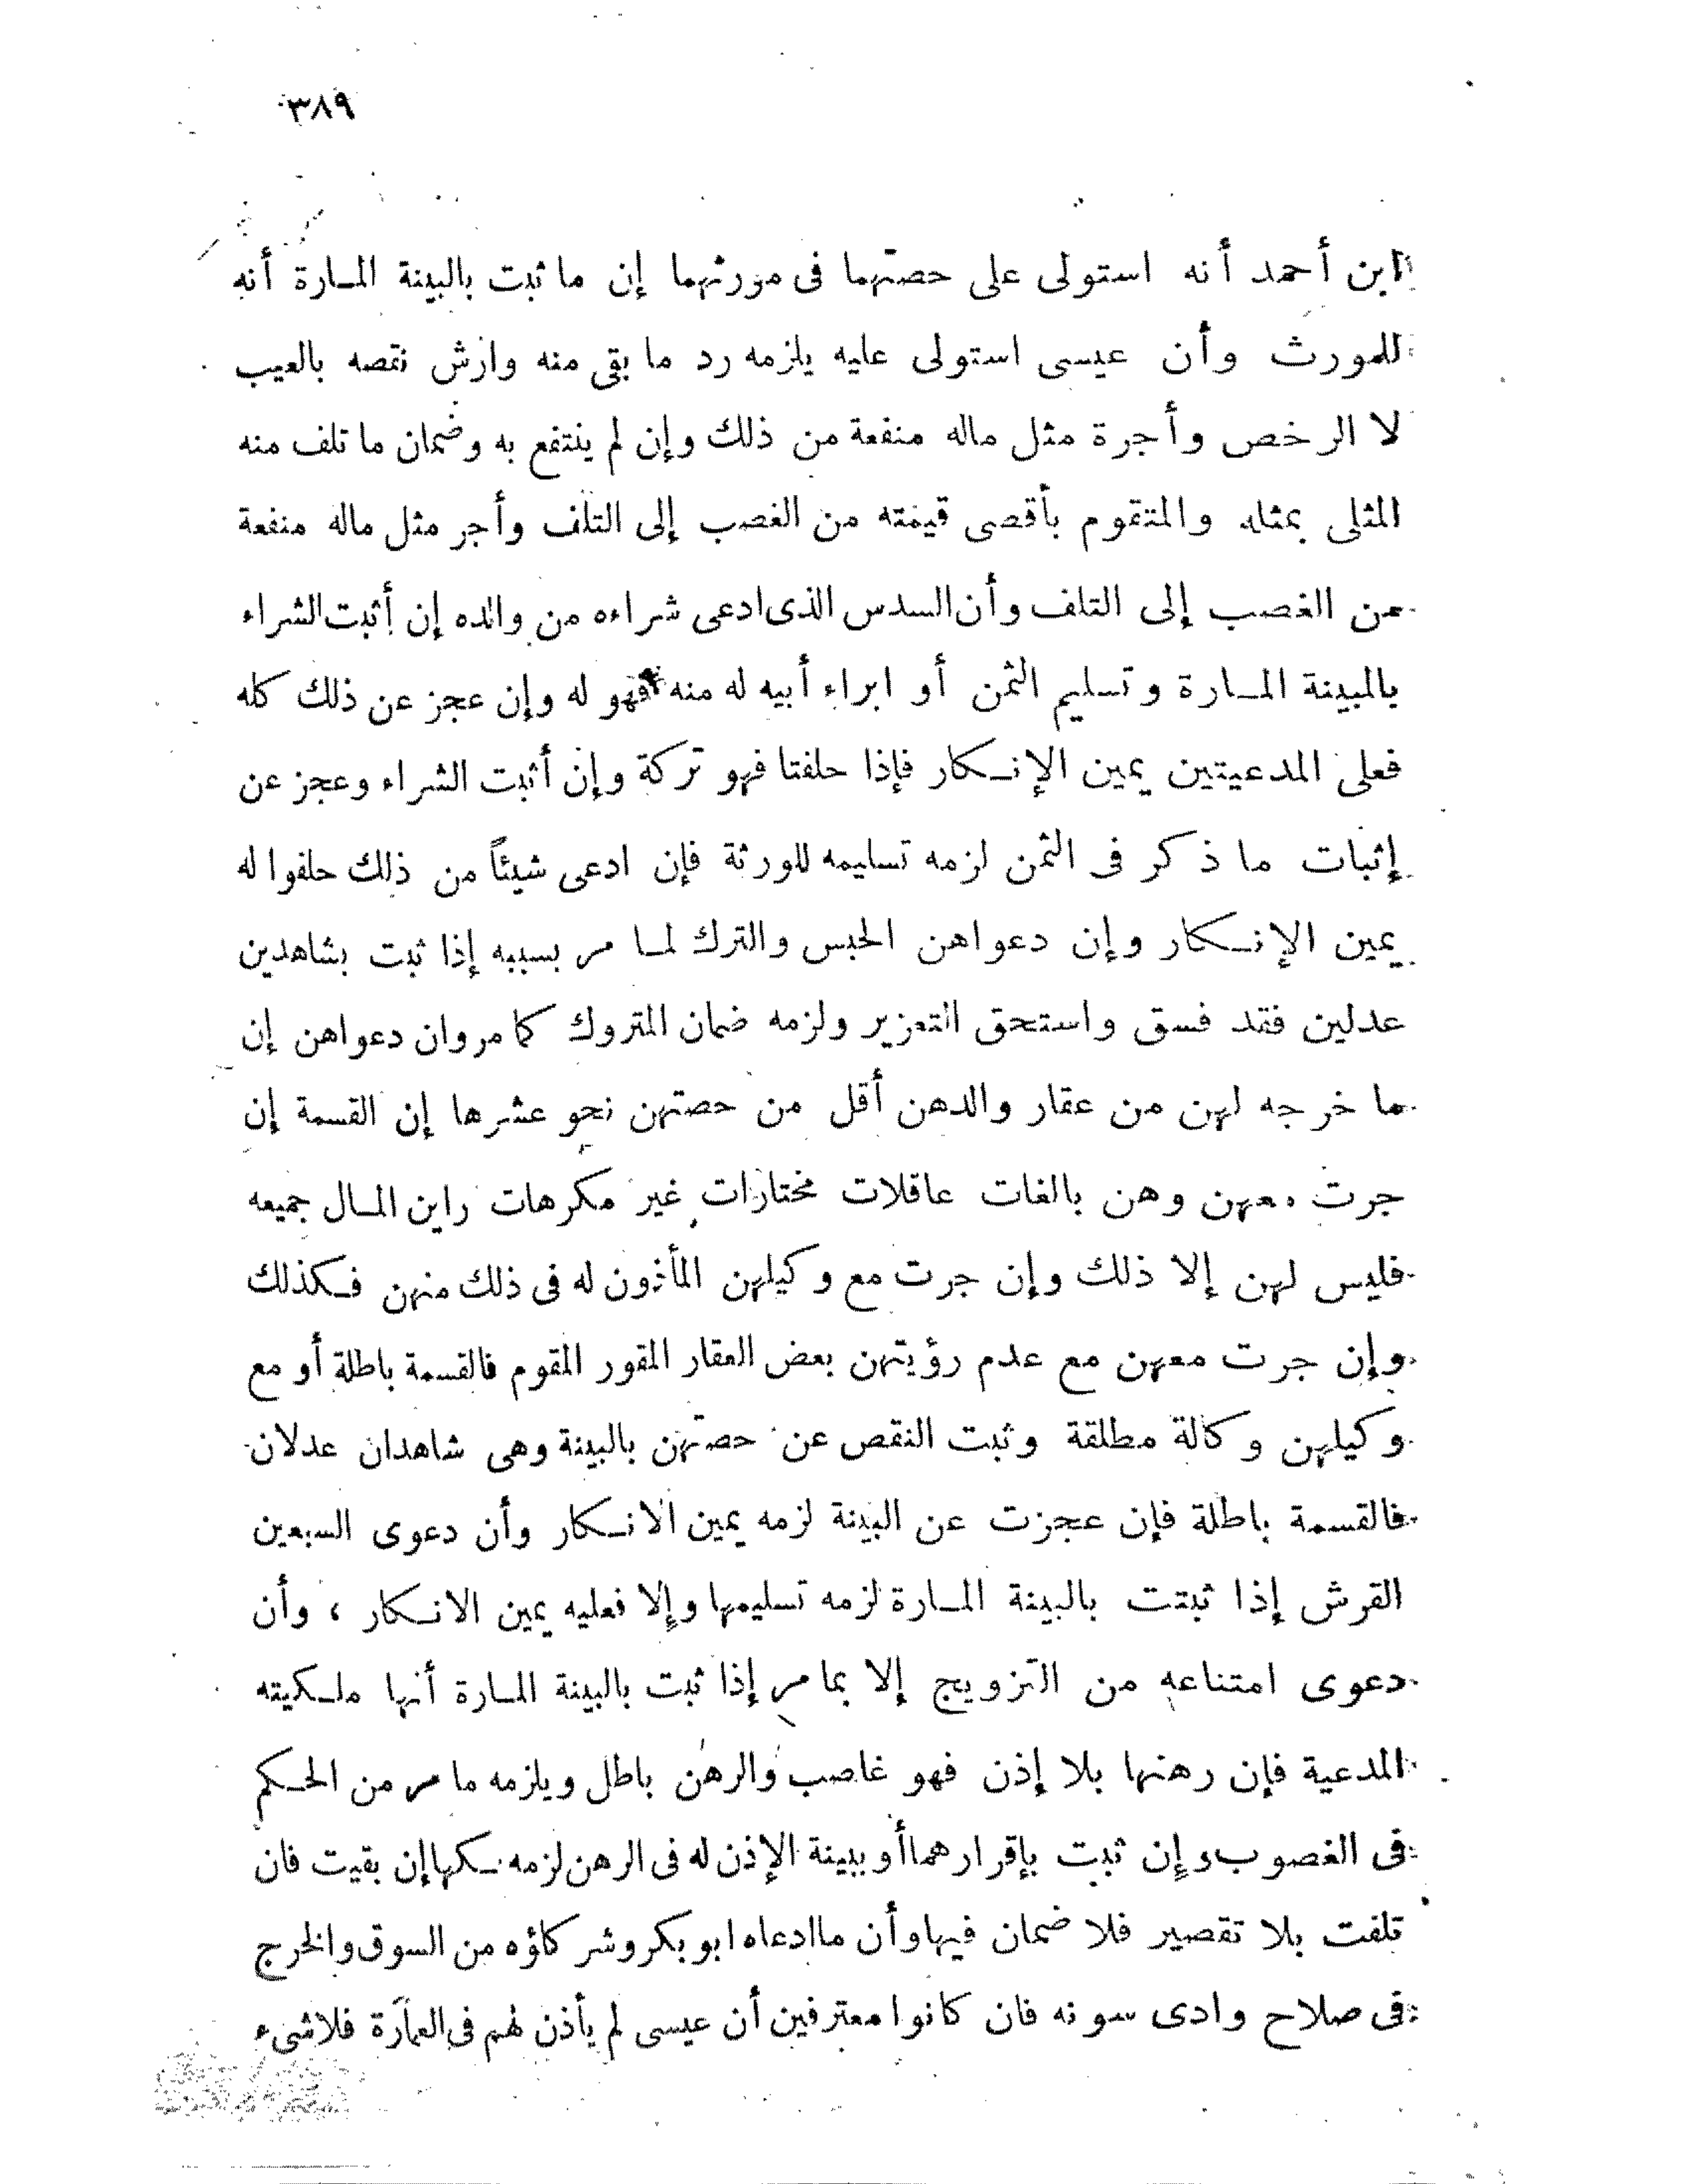 ٣٨٩
ابن أحمد أنه استولى على حصتهما فى مورثهما إن ما ثبت بالبينة المارة أنه
للمورث وأن عيسى استولى عليه يلزمه رد ما بقى منه وارش نقصه بالعيب
لا الرخص وأجرة مثل ماله منفعة من ذلك وإن لم ينتفع به وضمان ما تلف منه
المثلى بمثله والمتقوم بأقصى قيمته من الغصب إلى التلف وأجر مثل ماله منفعة
من الغصب إلى التلف وأن السدس الذى ادعى شراءه من والده إن أثبت الشراء
بالبينة المارة وتسليم الثمن أو ابراء أبيه له منه فهو له وإن عجز عن ذلك كله
فعلى المدعيتين يمين الإنكار فإذا حلفتا فهو تركة وإن أثبت الشراء وعجز عن
إثبات ما ذكر فى الثمن لزمه تسليمه للورثة فإن ادعى شيئاً من ذلك حلفوا له
يمين الإنكار وإن دعواهن الحبس والترك لما مر بسببه إذا ثبت بشاهدين
عدلين فقد فسق واستحق التعزير ولزمه ضمان المتروك كما مر وان دعواهن إن
ما خرجه لهن من عقار والدهن أقل من حصتهن نحو عشرها إن القسمة إن
جرت معهن وهن بالغات عاقلات مختارات غير مكرهات راين المال جميعه
فليس لهن إلا ذلك وإن جرت مع وكيلهن المأذون له فى ذلك منهن فكذلك
وإن جرت معهن مع عدم رؤيتهن بعض العقار المقور المقوم فالقسمة باطلة أو مع
وكيلهن وكالة مطلقة وثبت النقص عن حصتهن بالبينة وهى شاهدان عدلان
فالقسمة باطلة فإن عجزت عن البينة لزمه يمين الانكار وأن دعوى السبعين
القرش إذا ثبتت بالبينة المارة لزمه تسليمها وإلا فعليه يمين الانكار ، وأن
دعوى امتناعه من التزويج إلا بما مر إذا ثبت بالبينة المارة أنها ملكيته
المدعية فإن رهنها بلا إذن فهو غاصب والرهن باطل ويلزمه ما مر من الحكم
فى الغصوب وإن ثبت بإقرارهما أو ببينة الإذن له فى الرهن لزمه فكها إن بقيت فان
تلفت بلا تقصير فلا ضمان فيها وأن ما ادعاه ابو بكر وشركاؤه من السوق والخرج
فى صلاح وادى سونه فان كانوا معترفين أن عيسى لم يأذن لهم فى العمارة فلا شىء